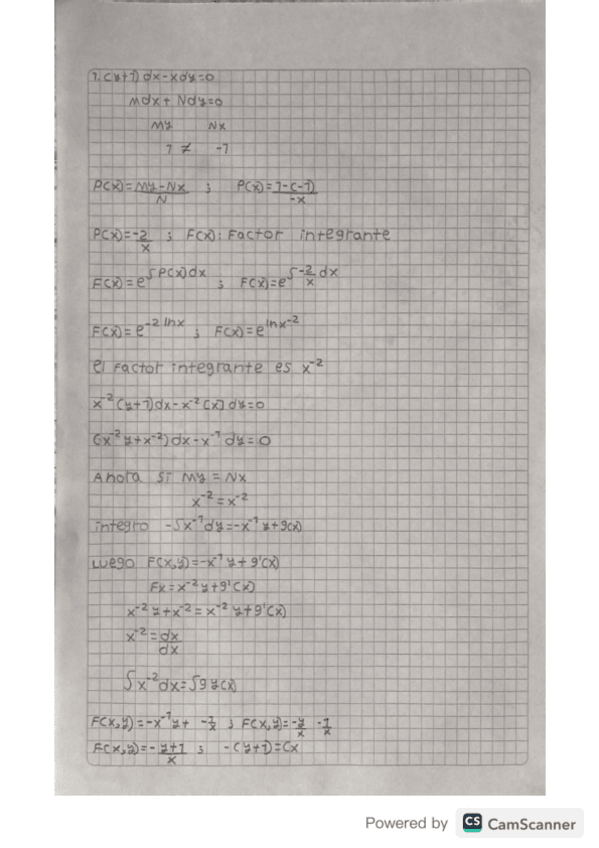 1. (y+1) dx-xdy=0
Mdx + Ndy=0
My Nx
1 ≠ -1
P(x)=My-Nx/N ; P(x)=1-(-1)/-x
P(x)=-2/x ; F(x): Factor integrante
F(x)=e^∫P(x)dx ; F(x)=e^∫-2/x dx
F(x)=e^-2 lnx ; F(x)=e^lnx^-2
el Factor integrante es x^-2
x^-2 (y+1)dx-x^-2 [x] dy=0
(x^-2 y+x^-2)dx-x^-1 dy=0
Ahora si My = Nx
x^-2=x^-2
integro -∫x^-1 dy=-x^-1 y+g(x)
Luego F(x,y)=-x^-1 y+g'(x)
Fx=x^-2 y+g'(x)
x^-2 y+x^-2=x^-2 y+g'(x)
x^-2=dx/dx
∫x^-2dx=∫g y(x)
F(x,y)=-x^-1 y+ -1/x ; F(x,y)=-y/x -1/x
F(x,y)=- y+1/x ; -(y+1)=Cx
Powered by CS CamScanner